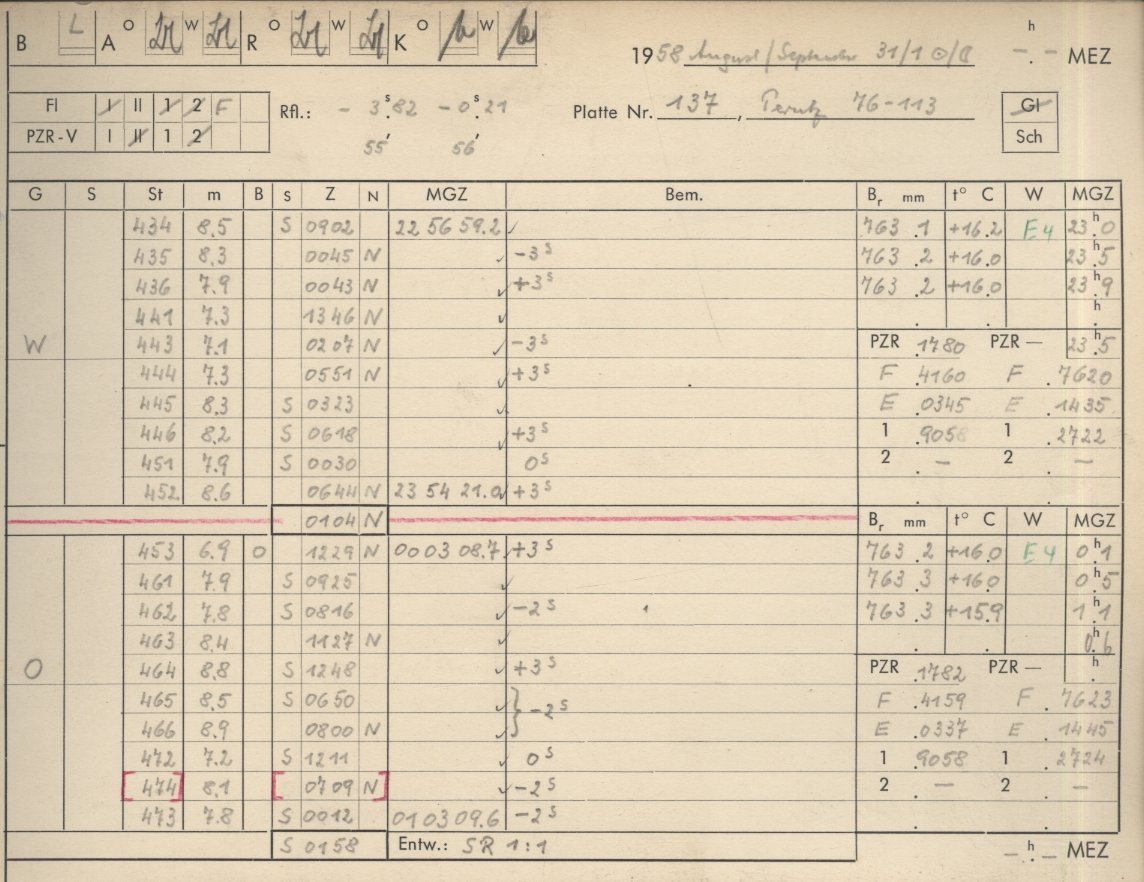 B L A O W R O W K O W
1958 August/September 31/1 h -.- MEZ
Fl I II 1 2 F
Rfl.: - 3.ˢ82 - 0.ˢ21
Platte Nr. 137, Perutz 76-113
Gl
PZR-V I II 1 2
55′ 56′
Sch
G S St m B S Z N MGZ Bem. Bᵣ mm t° C W MGZ
434 8.5 S 0902 22 56 59.2 ✓ 763.1 +16.2 E4 23.ʰ0
435 8.3 0045 N ✓ -3ˢ 763.2 +16.0 23.ʰ5
436 7.9 0043 N ✓ +3ˢ 763.2 +16.0 23.ʰ9
441 7.3 1346 N ✓ .ʰ
W 443 7.1 0207 N ✓ -3ˢ PZR .1780 PZR — 23.ʰ5
444 7.3 0551 N ✓ +3ˢ F .4160 F .7620
445 8.3 S 0323 ✓ E .0345 E .1435
446 8.2 S 0618 ✓ +3ˢ 1 .9058 1 .2722
451 7.9 S 0030 0ˢ 2 . — 2 . —
452 8.6 0644 N 23 54 21.0 ✓ +3ˢ
0104 N Bᵣ mm t° C W MGZ
453 6.9 O 1229 N 00 03 08.7 ✓ +3ˢ 763.2 +16.0 E4 0.ʰ1
461 7.9 S 0925 ✓ 763.3 +16.0 0.ʰ5
462 7.8 S 0816 ✓ -2ˢ 763.3 +15.9 1.ʰ1
463 8.4 1127 N ✓ 0.ʰ6
O 464 8.8 S 1248 ✓ +3ˢ PZR .1782 PZR — .ʰ
465 8.5 S 0650 ✓ } -2ˢ F .4159 F .7623
466 8.9 0800 N ✓ E .0337 E .1445
472 7.2 S 1211 ✓ 0ˢ 1 .9058 1 .2724
[474] 8.1 [0709 N] ✓ -2ˢ 2 . — 2 . —
473 7.8 S 0012 01 03 09.6 -2ˢ
S 0158 Entw.: SR 1:1 -.ʰ- MEZ